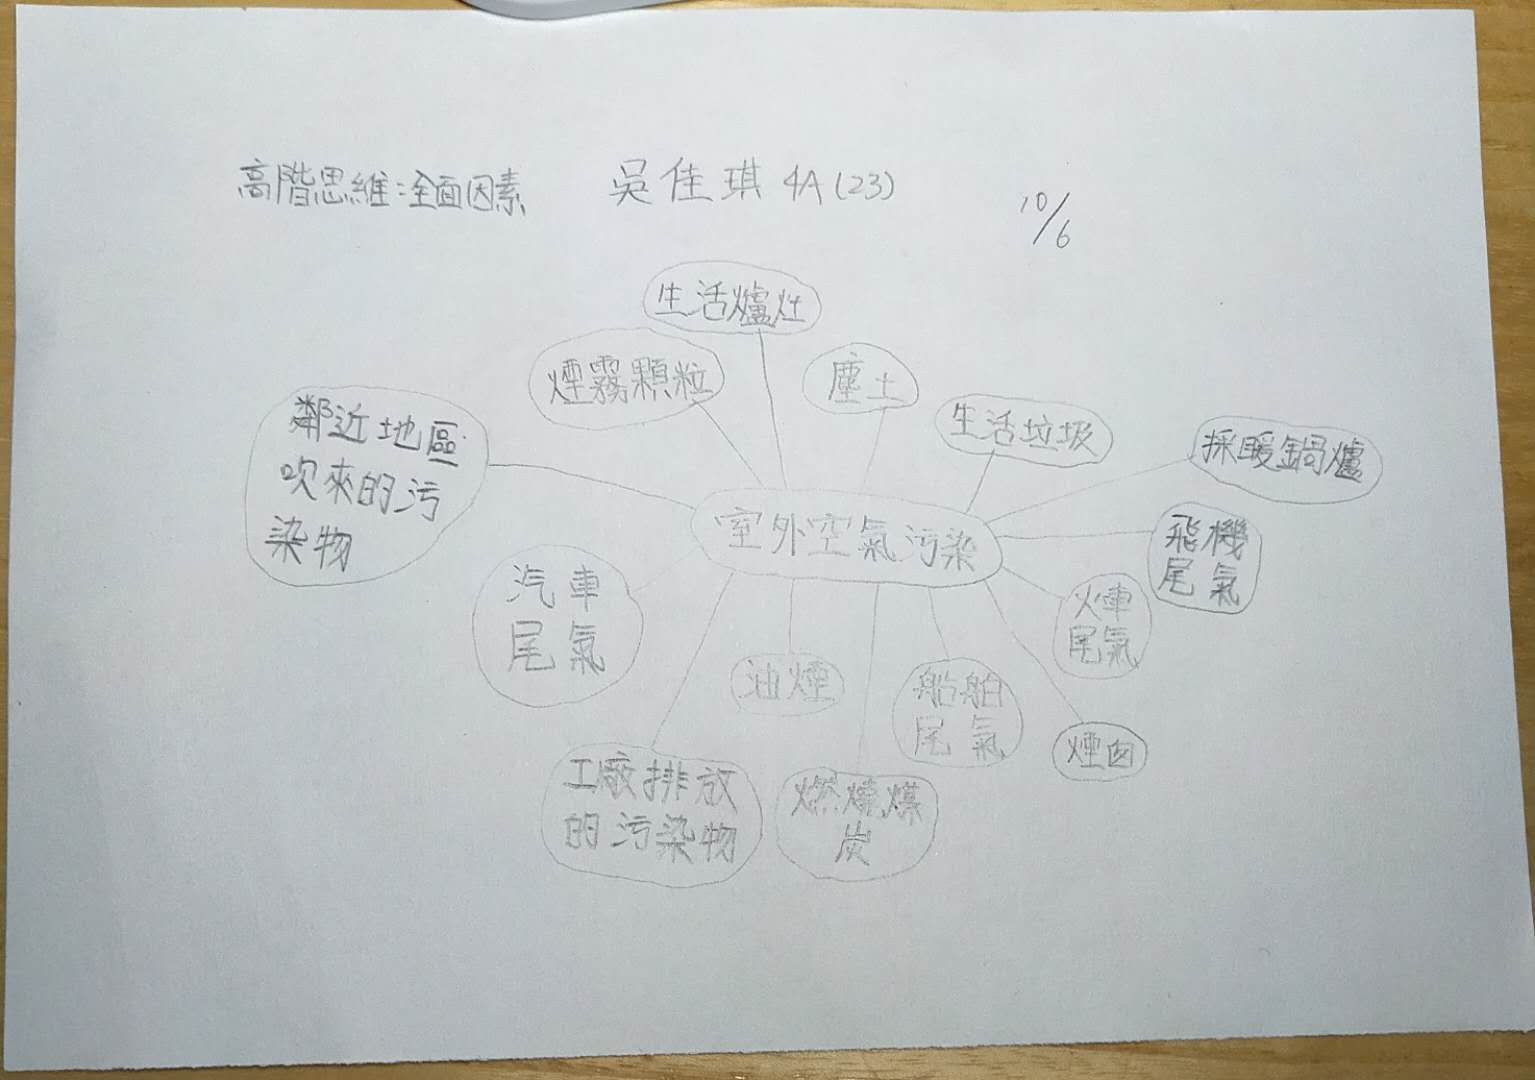 高階思維:全面因素
吳佳琪 4A(23)
10/6
生活爐灶
煙霧顆粒
塵土
生活垃圾
採暖鍋爐
鄰近地區
吹來的污
染物
室外空氣污染
飛機
尾氣
汽車
尾氣
火車
尾氣
油煙
船舶
尾氣
煙囱
工廠排放
的污染物
燃燒煤
炭